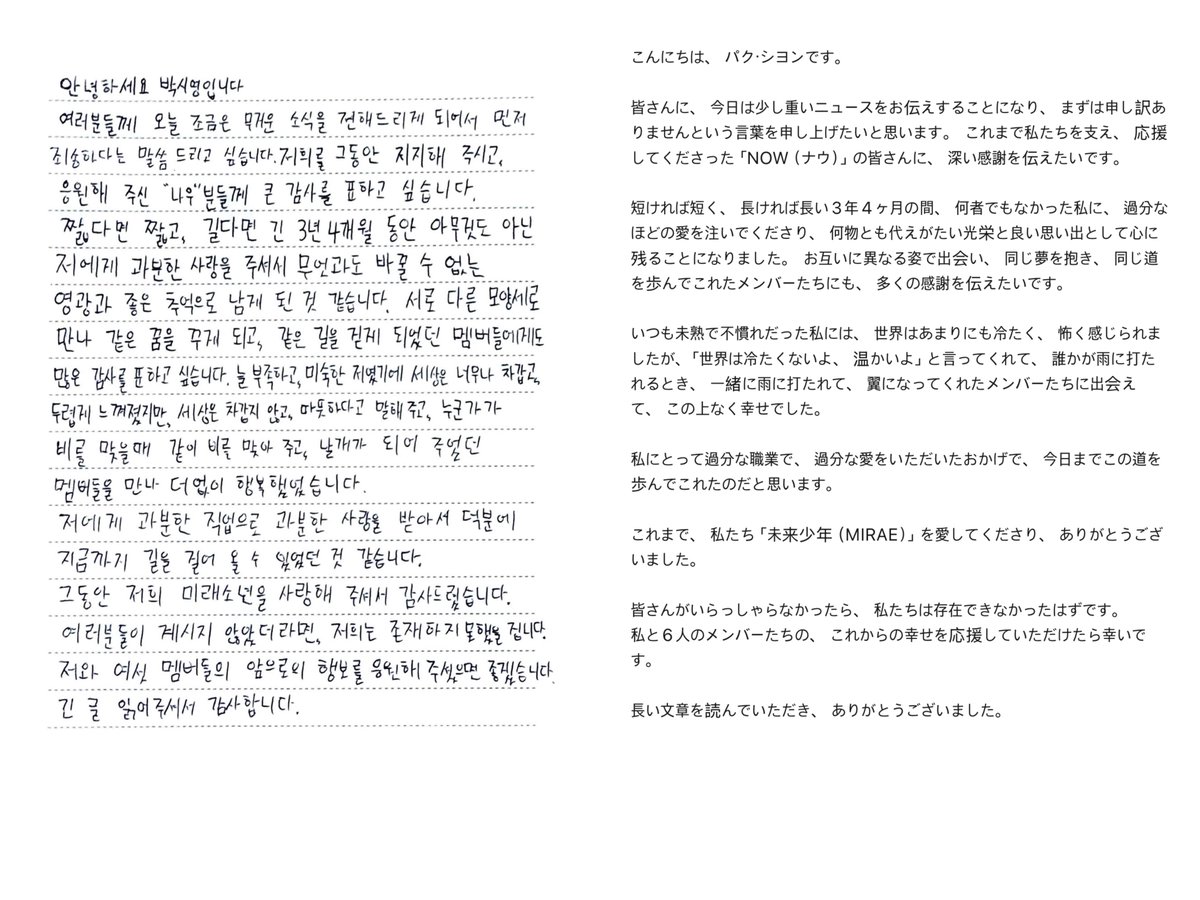 안녕하세요 박시영입니다
여러분들께 오늘 조금은 무거운 소식을 전해드리게 되어서 먼저
죄송하다는 말씀 드리고 싶습니다. 저희를 그동안 지지해 주시고,
응원해 주신 "나우"분들께 큰 감사를 표하고 싶습니다.
짧다면 짧고, 길다면 긴 3년 4개월 동안 아무것도 아닌
저에게 과분한 사랑을 주셔서 무언과도 바꿀 수 없는
영광과 좋은 추억으로 남게 된 것 같습니다. 서로 다른 모양새로
만나 같은 꿈을 꾸게 되고, 같은 길을 걷게 되었던 멤버들에게도
많은 감사를 표하고 싶습니다. 늘 부족하고, 미숙한 저였기에 세상은 너무나 차갑고,
두렵게 느껴졌지만, 세상은 차갑지 않고, 따뜻하다고 말해 주고, 누군가가
비를 맞을때 같이 비를 맞아 주고, 날개가 되어 주었던
멤버들을 만나 더없이 행복했었습니다.
저에게 과분한 직업으로 과분한 사랑을 받아서 덕분에
지금까지 길을 걸어 올 수 있었던 것 같습니다.
그동안 저희 미래소년을 사랑해 주셔서 감사드렸습니다.
여러분들이 계시지 않았더라면, 저희는 존재하지 못했을 겁니다.
저와 여섯 멤버들의 앞으로의 행보를 응원해 주셨으면 좋겠습니다.
긴 글 읽어주셔서 감사합니다.
こんにちは、 パク·シヨンです。
皆さんに、 今日は少し重いニュースをお伝えすることになり、 まずは申し訳あ
りませんという言葉を申し上げたいと思います。 これまで私たちを支え、 応援
してくださった「NOW（ナウ）」の皆さんに、 深い感謝を伝えたいです。
短ければ短く、 長ければ長い３年４ヶ月の間、 何者でもなかった私に、 過分な
ほどの愛を注いでくださり、 何物とも代えがたい光栄と良い思い出として心に
残ることになりました。 お互いに異なる姿で出会い、 同じ夢を抱き、 同じ道
を歩んでこれたメンバーたちにも、 多くの感謝を伝えたいです。
いつも未熟で不慣れだった私には、 世界はあまりにも冷たく、 怖く感じられま
したが、「世界は冷たくないよ、 温かいよ」と言ってくれて、 誰かが雨に打た
れるとき、 一緒に雨に打たれて、 翼になってくれたメンバーたちに出会え
て、 この上なく幸せでした。
私にとって過分な職業で、 過分な愛をいただいたおかげで、 今日までこの道を
歩んでこれたのだと思います。
これまで、 私たち「未来少年（MIRAE）」を愛してくださり、 ありがとうござ
いました。
皆さんがいらっしゃらなかったら、 私たちは存在できなかったはずです。
私と６人のメンバーたちの、 これからの幸せを応援していただけたら幸いで
す。
長い文章を読んでいただき、 ありがとうございました。